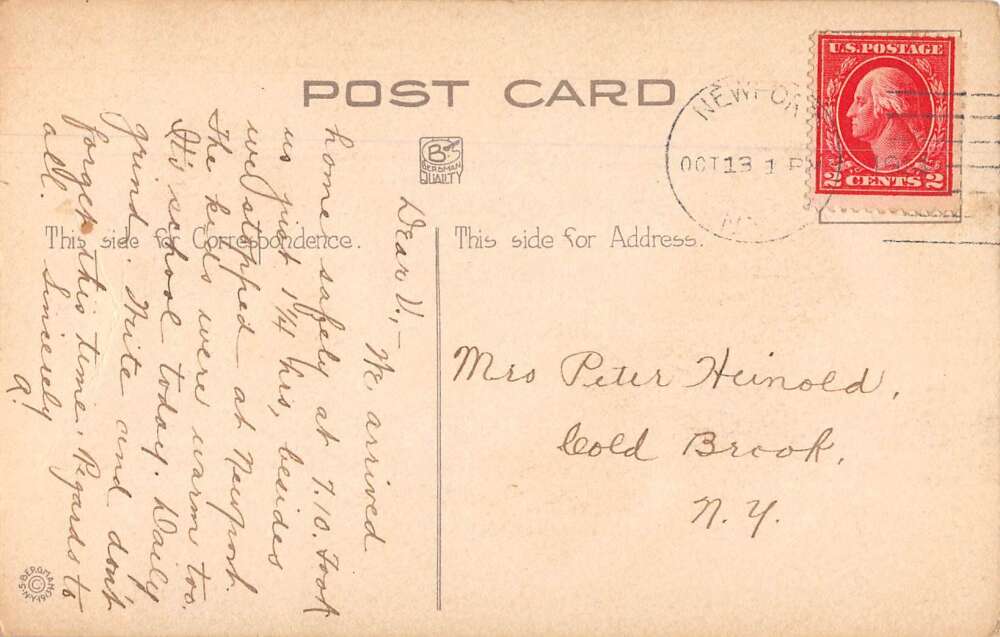 POST CARD
NEWPOR
OCT 13 1 PM
N.Y.
U.S. POSTAGE
2 CENTS 2
BS
BERGMAN
QUALITY
This side for Correspondence.
This side for Address.
Dear V., - We arrived
home safely at 7.10. Took
us just 1 1/4 hrs, besides
we stopped at Newport.
The kids were warm too.
It's school today. Daily
grind. Write and don't
forget this time. Regards to
all. Sincerely
A.
Mrs Peter Heinold,
Cold Brook,
N.Y.